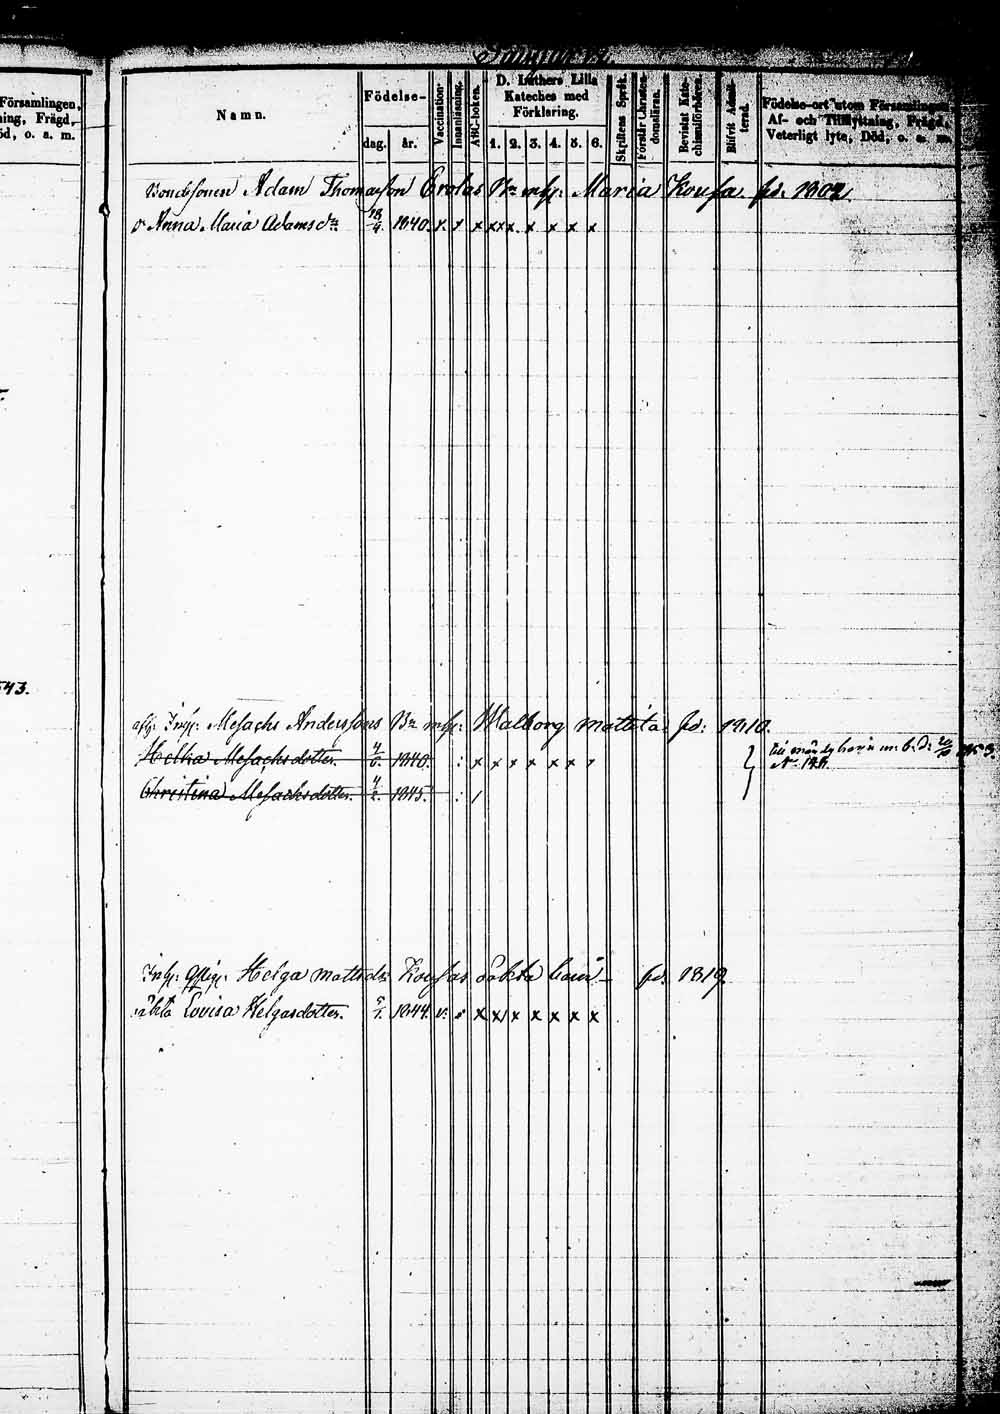 Församlingen,
ning, Frägd,
öd, o. a. m.
Namn.
Födelse-
dag. år.
Vaccination
Innanläsning.
ABC-boken.
D. Luthers Lilla
Kateches med
Förklaring.
1. 2. 3. 4. 5. 6.
Skriftens Språk.
Bevistat Kate-
chismiförhören.
Blifvit Admit-
terad.
Födelse-ort utom Församlingen
Af- och Tillflyttning, Frägd,
Veterligt lyte, Död, o. a. m.
Bondesonen Adam Thomasson Erolas Maria Koufa fd. 1802
Anna Maria Adamsdr. 18/4. 1840. v. x x x x x x x x x
543.
Mesachs Anderssons Walborg Mattita fd: 1810.
Helka Mesachsdotter. 4/6. 1840. : x x x x x x x
N. 148.
Christina Mesachsdotter. 4/2. 1845. : /
Helga Mattsdr. Koufas oäkta barn – fd. 1819.
oäkta Lovisa Helgasdotter. 5/1. 1844. v. x x x x x x x x